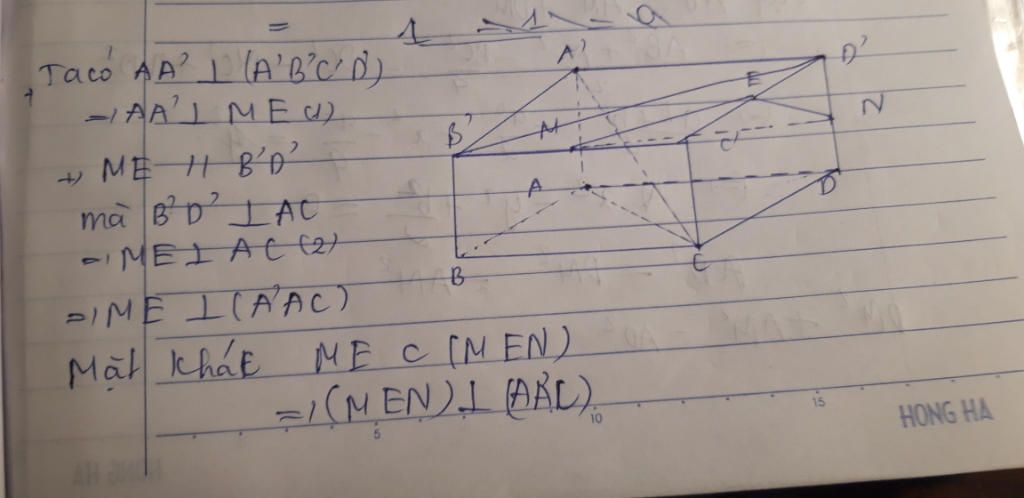 = 1
+ Ta có AA' ⊥ (A'B'C'D')
=) AA' ⊥ ME (1)
+) ME // B'D'
mà B'D' ⊥ AC
=) ME ⊥ AC (2)
=) ME ⊥ (A'AC)
Mặt khác ME ⊂ (MEN)
=) (MEN) ⊥ (AA'C)
A'
D'
E
B'
M
C'
N
A
D
B
C
5
10
15
HONG HA